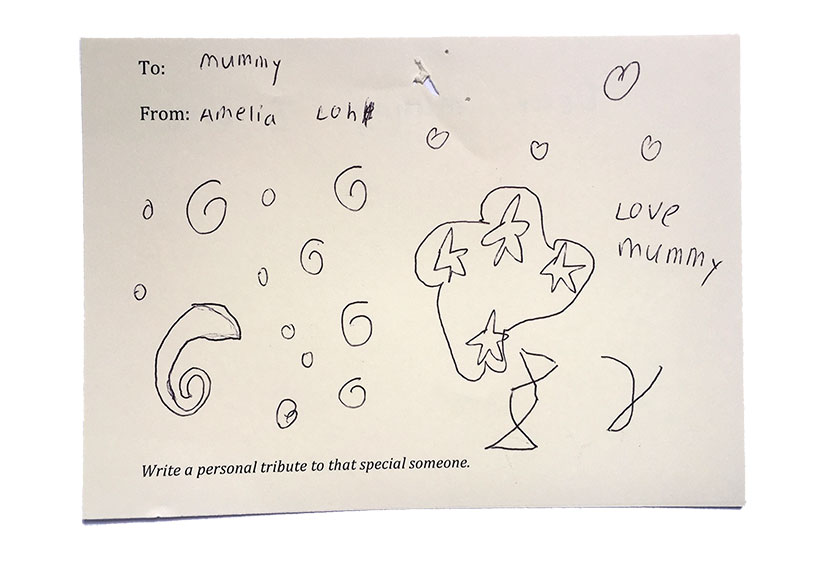 To: mummy
From: Amelia Loh
Love
mummy
Write a personal tribute to that special someone.